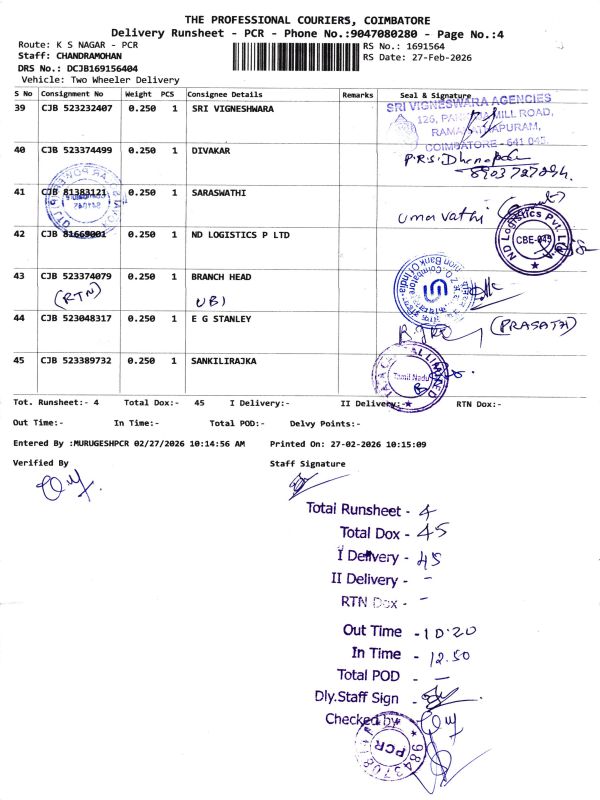 THE PROFESSIONAL COURIERS, COIMBATORE
Delivery Runsheet - PCR - Phone No.:9047080280 - Page No.:4
Route: K S NAGAR - PCR
RS No.: 1691564
Staff: CHANDRAMOHAN
RS Date: 27-Feb-2026
DRS No.: DCJB169156404
Vehicle: Two Wheeler Delivery
S No Consignment No Weight PCS Consignee Details Remarks Seal & Signature
39 CJB 523232407 0.250 1 SRI VIGNESHWARA
SRI VIGNESWARA AGENCIES
MILL ROAD,
COIMBATORE - 641 045.
40 CJB 523374499 0.250 1 DIVAKAR
41 CJB 81383121 0.250 1 SARASWATHI
Umavathi
42 CJB 81669001 0.250 1 ND LOGISTICS P LTD
ND Logistics Pvt. Ltd.
CBE-045
43 CJB 523374079 0.250 1 BRANCH HEAD
(RTN) UBI
Union Bank Of India
44 CJB 523048317 0.250 1 E G STANLEY
(PRASATH)
45 CJB 523389732 0.250 1 SANKILIRAJKA
Tamil Nadu
Tot. Runsheet:- 4 Total Dox:- 45 I Delivery:- II Delivery:- RTN Dox:-
Out Time:- In Time:- Total POD:- Delvy Points:-
Entered By :MURUGESHPCR 02/27/2026 10:14:56 AM Printed On: 27-02-2026 10:15:09
Verified By Staff Signature
Total Runsheet - 4
Total Dox - 45
I Delivery - 45
II Delivery - -
RTN Dox - -
Out Time - 10.20
In Time - 12.50
Total POD - -
Dly.Staff Sign -
Checked by
PCR